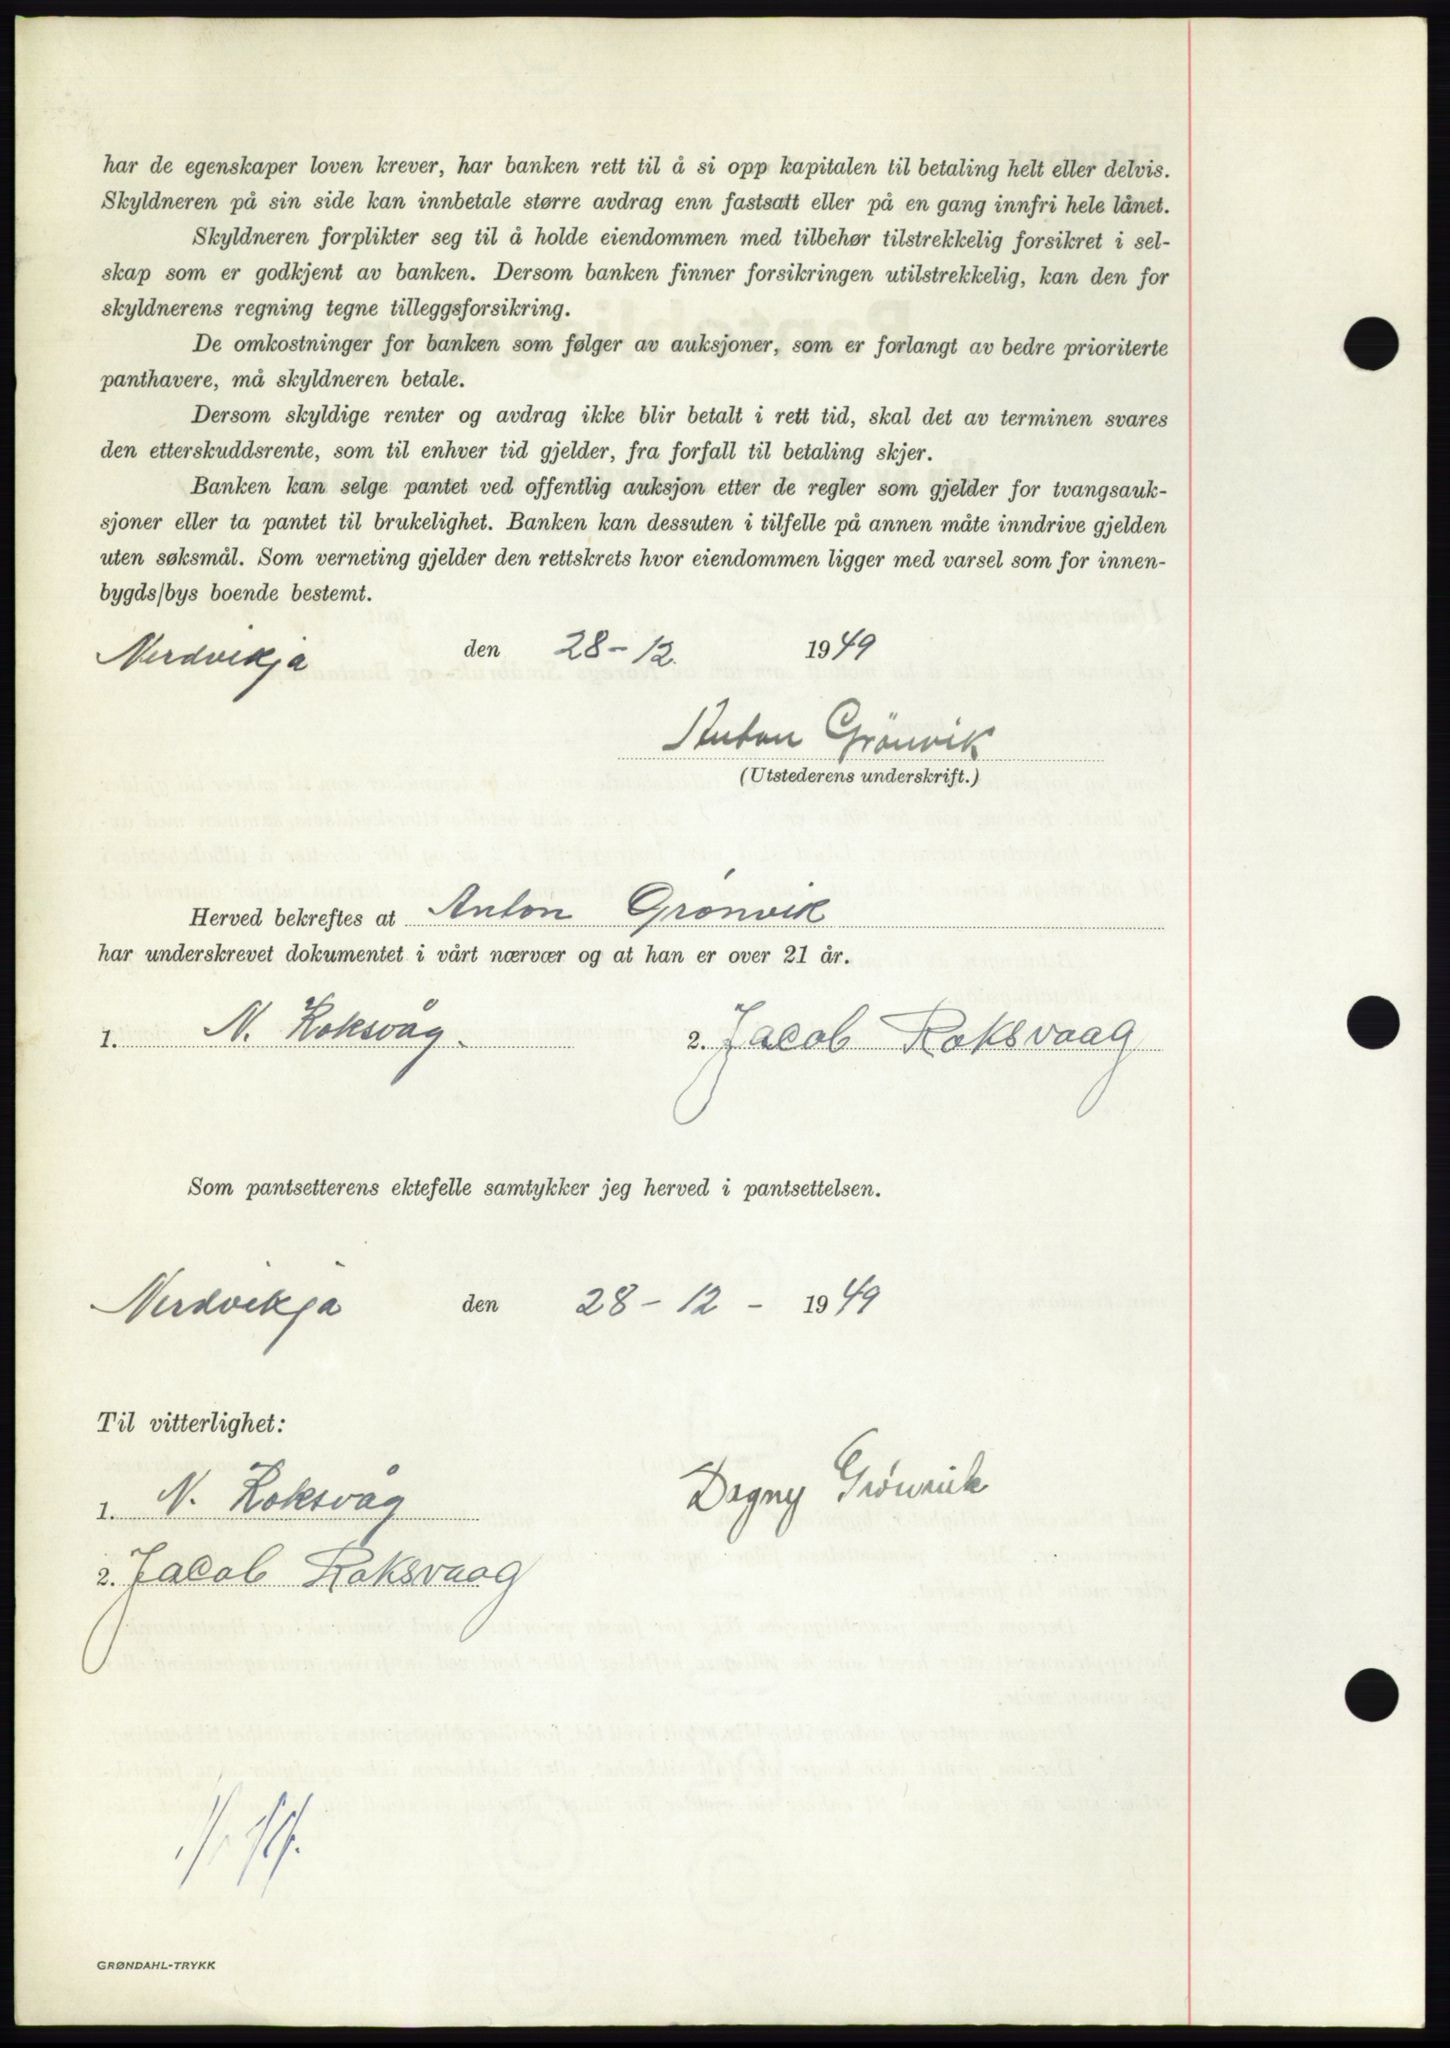 har de egenskaper loven krever, har banken rett til å si opp kapitalen til betaling helt eller delvis.
Skyldneren på sin side kan innbetale større avdrag enn fastsatt eller på en gang innfri hele lånet.
Skyldneren forplikter seg til å holde eiendommen med tilbehør tilstrekkelig forsikret i sel-
skap som er godkjent av banken. Dersom banken finner forsikringen utilstrekkelig, kan den for
skyldnerens regning tegne tilleggsforsikring.
De omkostninger for banken som følger av auksjoner, som er forlangt av bedre prioriterte
panthavere, må skyldneren betale.
Dersom skyldige renter og avdrag ikke blir betalt i rett tid, skal det av terminen svares
den etterskuddsrente, som til enhver tid gjelder, fra forfall til betaling skjer.
Banken kan selge pantet ved offentlig auksjon etter de regler som gjelder for tvangsauk-
sjoner eller ta pantet til brukelighet. Banken kan dessuten i tilfelle på annen måte inndrive gjelden
uten søksmål. Som verneting gjelder den rettskrets hvor eiendommen ligger med varsel som for innen-
bygds/bys boende bestemt.
Nerdvikja den 28-12. 1949
Anton Grönvik
(Utstederens underskrift.)
Herved bekreftes at Anton Grønvik
har underskrevet dokumentet i vårt nærvær og at han er over 21 år.
1. N. Koksvåg. 2. Jacob Roksvaag
Som pantsetterens ektefelle samtykker jeg herved i pantsettelsen.
Nerdvikja den 28-12- 1949
Til vitterlighet:
1. N. Koksvåg Dagny Grønvik
2. Jacob Roksvaag
GRØNDAHL-TRYKK